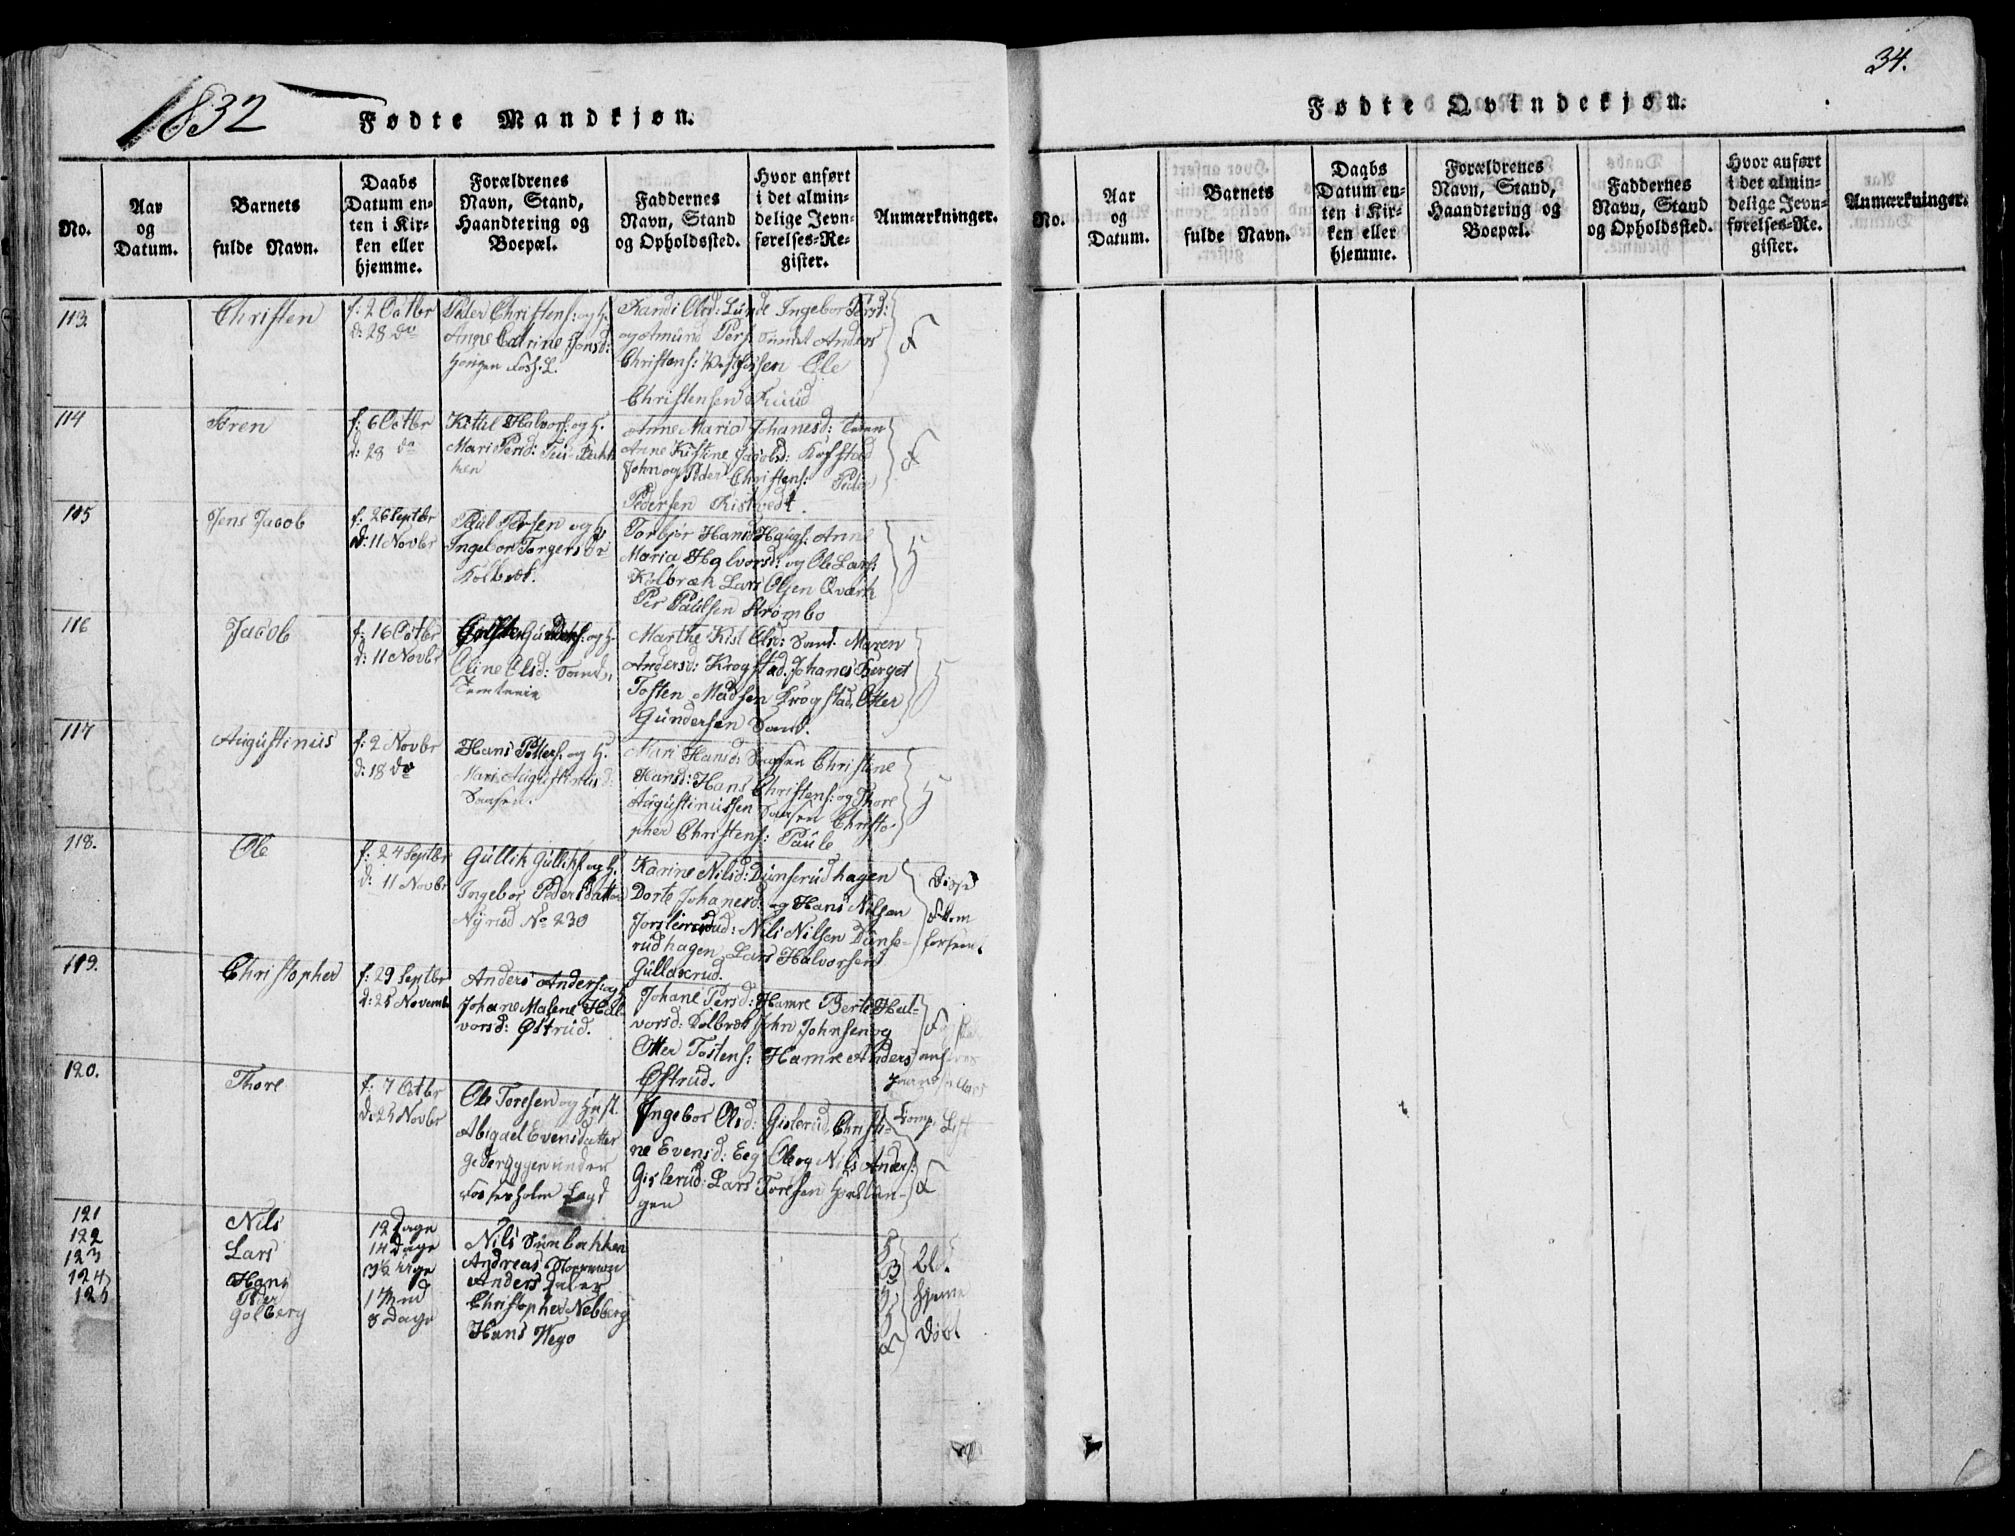 1832
Fødte Mandkjøn.
No.
Aar og Datum.
Barnets fulde Navn.
Daabs Datum enten i Kirken eller hjemme.
Forældrenes Navn, Stand, Haandtering og Boepæl.
Faddernes Navn, Stand og Opholdssted.
Hvor anført i det almindelige Jevnførelses-Register.
Anmærkninger.
113.
Christen
f: 2 Octbr
d: 28 do
Peder Christens: og H.
Anne Catrine Jonsd:
Kandi Olsd: Lunde Ingebor Persd:
og Amund Pers: Anders
Christens: Ole
Christensen Ruud
F
114
Søren
f: 6 Octbr
d: 28 do
Kittil Halvors: og H.
Mari Persd:
Anne Maria Johanesd:
Anne Kistine Jacobsd: Kofstad
John og Peder Christens: Peder
Pedersen Kistvedt.
F
115
Jens Jacob
f: 26 Septbr
d: 11 Novbr
Paul Persen og H.
Ingebor Torgersdr
Kolbræk.
Torbjør Hansd Haugs: Anne
Maria Halvorsd: og Ole Lars:
Kolbræk Lars Olsen Qværk
Per Paulsen Strømbo
H
116
Jacob
f: 16 Octbr
d: 11 Novbr
Gunders: og H.
Oline Olsd: Sand.
Marthe Kist Olsd: Sand. Maren
Andersd: Krogstad. Johanes Berget
Tosten Madsen Krogstad. Otter
Gundersen Sand.
H
117
Augustinus
f: 2 Novbr
d: 18 do
Hans Petters: og H.
Mari Augustinusd:
Saasen.
Mari Hansd: Saasen Christine
Hansd: Hans Christens: og Thore
Augustinussen Saasen Christo-
pher Christens: Paule
H
118.
Ole
f: 24 Septbr
d: 11 Novbr
Gullik Gulliks: og H.
Ingebor Pedersdatter
Nyrud No 230
Karine Nilsd: Dunserudhagen
Dorte Johanesd: og Hans Nilsen
Nils Nilsen Dunse-
rudhagen Lars Halvorsen
Gullaxrud.
Disse
119.
Christopher
f: 29 Septbr
d: 25 Novemb
Anders Anders: og H.
Johane Malene Hal-
vorsd: Østrud.
Johane Persd: Hamre Berte Hal-
vorsd: Kolbræk John Johnsen og
Otter Tostens: Hamre Anders
Østrud.
F
120.
Thore
f: 7 Octbr
d: 25 Novbr
Ole Toresen og Hust.
Abigael Evensdatter
under
Ingebor Olsd: Gislerud, Christi-
ne Evensd: Eeg Ole og Nils Anders:
Gislerud: Lars Toresen
gen
F
121
Nils
12 Dage
Nils Sunbakken
122
Lars
14 Dage
Andreas
123
Hans
3½ Uge
Anders
124
Peder
1 Md
Christopher Nebberg
125
Golberg
8 Dage
Hans Wego
hjeme
døbt
34.
Fødte Qvindekjøn.
No.
Aar og Datum.
Barnets fulde Navn.
Daabs Datum enten i Kirken eller hjemme.
Forældrenes Navn, Stand, Haandtering og Boepæl.
Faddernes Navn, Stand og Opholdssted.
Hvor anført i det almindelige Jevnførelses-Register.
Anmærkninger.